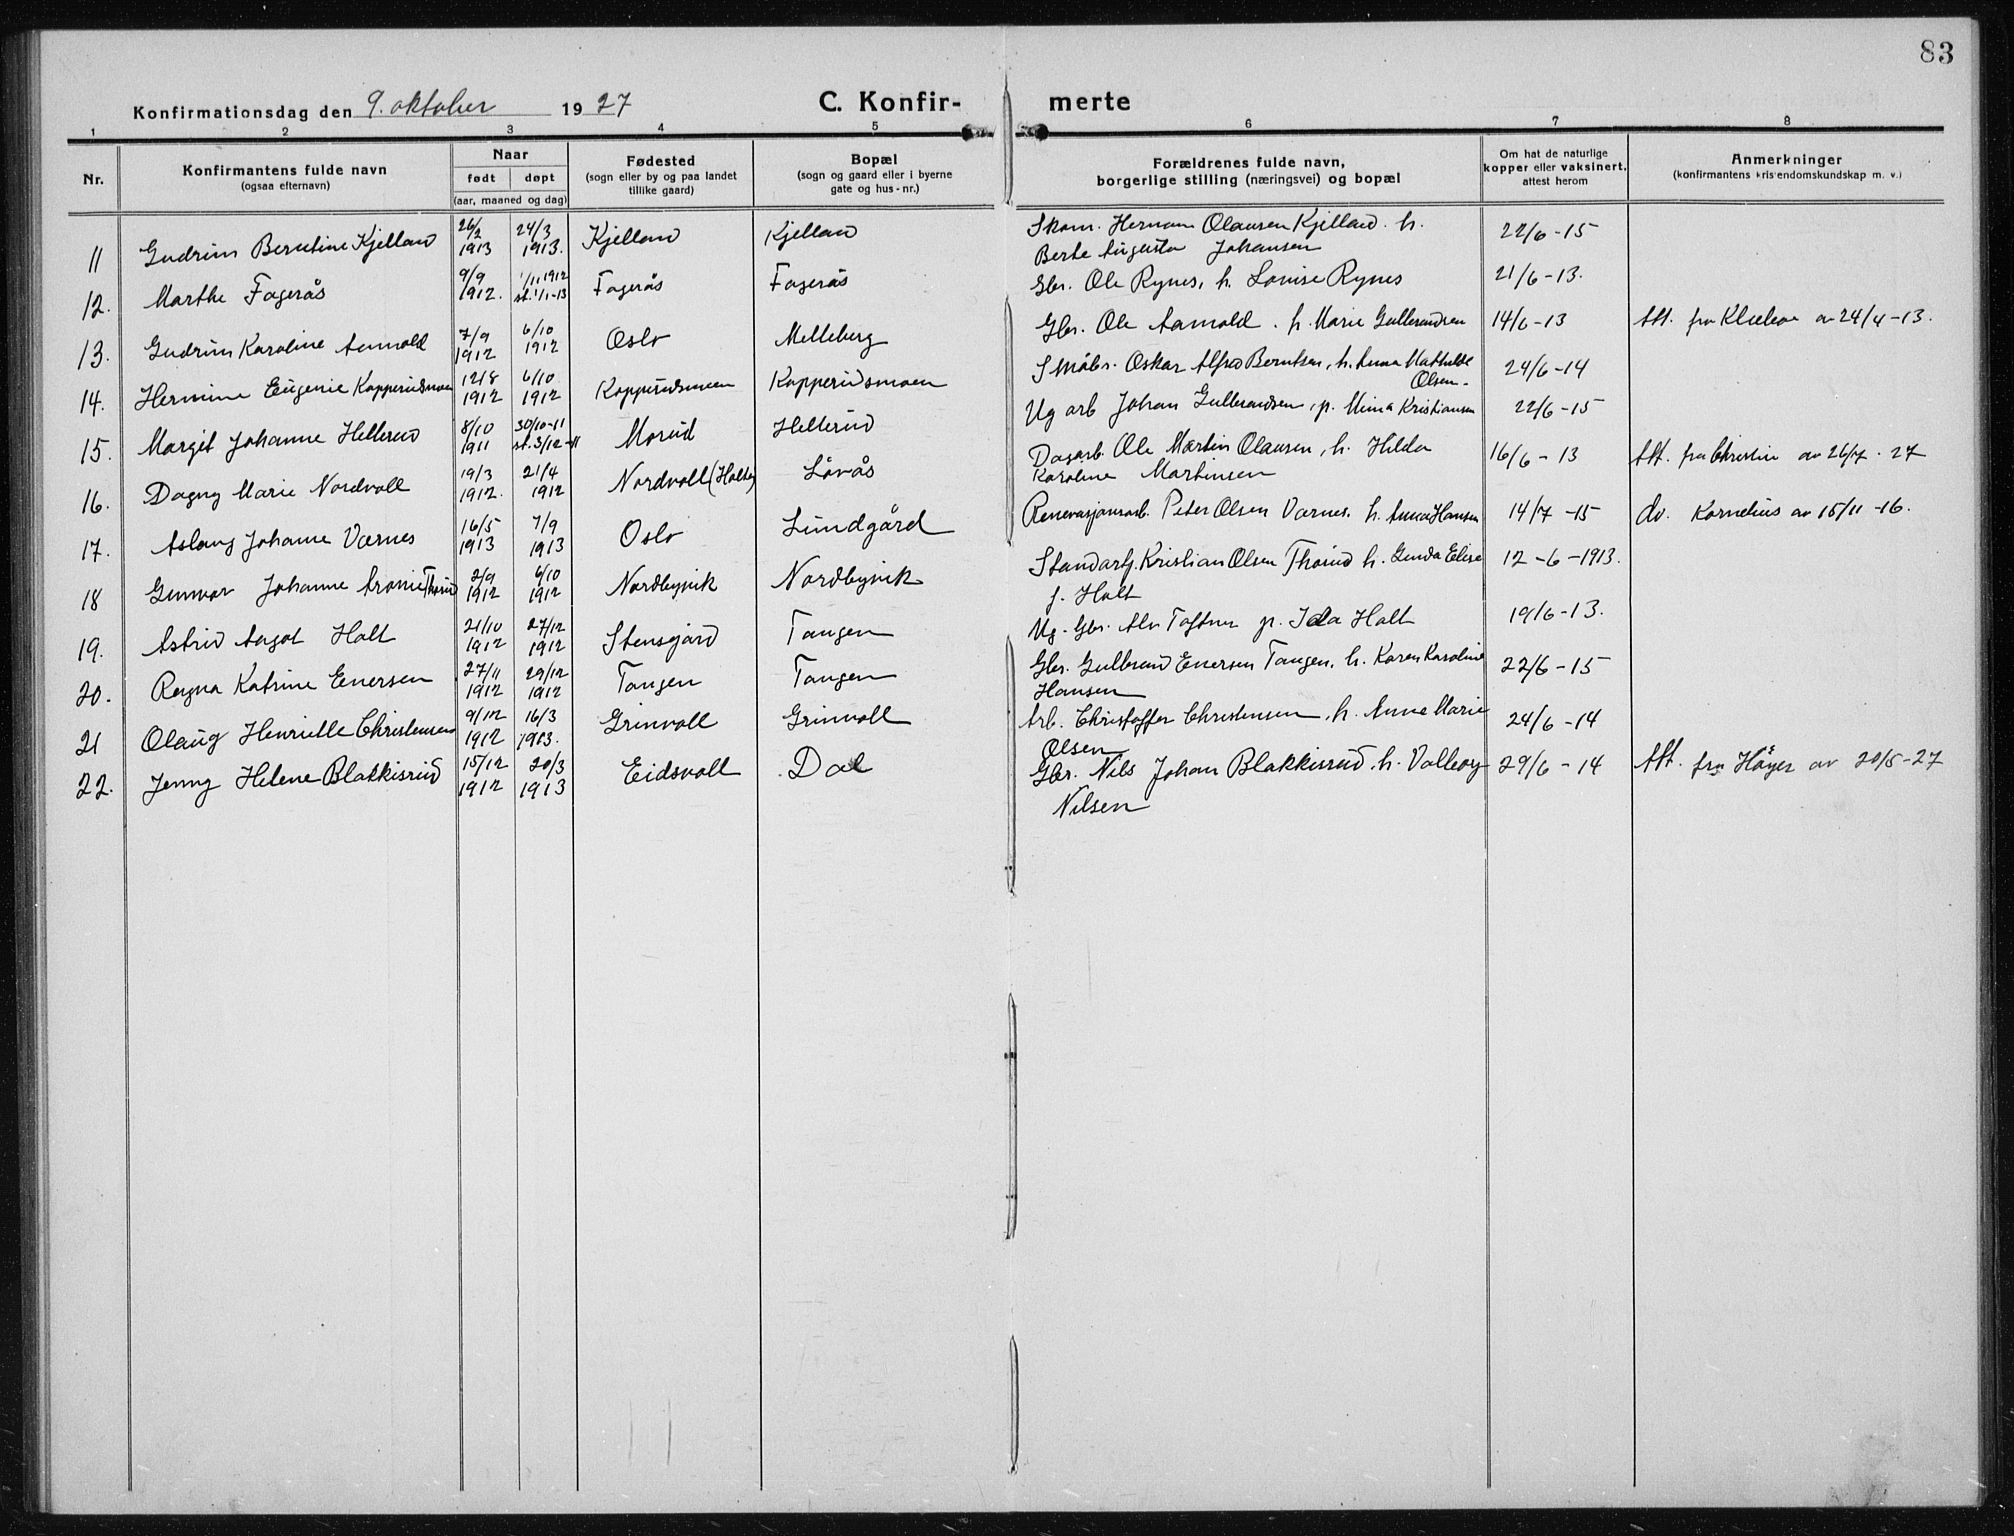 83
Konfirmationsdag den 9. oktober 1927 C. Konfirmerte
1 2 3 4 5 6 7 8
Nr. Konfirmantens fulde navn (ogsaa efternavn) Naar født døpt (aar, maaned og dag) Fødested (sogn eller by og paa landet tillike gaard) Bopæl (sogn og gaard eller i byerne gate og hus-nr.) Forældrenes fulde navn, borgerlige stilling (næringsvei) og bopæl Om hat de naturlige kopper eller vaksinert, attest herom Anmerkninger (konfirmantens kristendomskundskap m. v.)
11 Gudrun Berntine Kjelland 26/2 1913 24/3 1913. Kjelland Kjelland Skom. Herman Olausen Kjelland. h. Berte Augusta Johansen 22/6-15
12. Marthe Fagerås 9/9 1912. 1/11 1912 st. 1/1-13 Fagerås Fagerås Gbr. Ole Rynes, h. Lovise Rynes 21/6-13.
13. Gudrun Karoline Aamold 7/9 1912 6/10 1912 Oslo Melleberg Gbr. Ole Aamold. h. Marie Gulbrandsen 14/6-13 Att. fra av 24/4-13.
14. Hermine Eugenie Kopperudsmoen 12/8 1912 6/10 1912 Kopperudsmoen Kopperudsmoen Småbr. Oskar Alfred Berntsen, h. Anna Mathilde Olsen. 24/6-14
15. Margit Johanne Hellerud 8/10 1911 30/10-11 st. 3/12-11 Morud Hellerud Ug arb Johan Gulbrandsen, p. Mina Kristiansen 22/6-15
16. Dagny Marie Nordvoll 19/3 1912. 21/4 1912 Nordvoll (Holter) Låvås Dagarb. Ole Martin Olausen, h. Hilda Karoline Martinsen 16/6-13 Att. fra Christin av 26/7-27
17. Aslaug Johanne Værnes 16/5 1913 7/9 1913 Oslo Lundgård Renovasjonsarb. Peter Olsen Værnes. h. Anna Hansen 14/7-15 do. Kornelius av 15/11-16.
18 Gunvor Johanne Aronie Thorud 2/9 1912 6/10 1912 Nordbyvik Nordbyvik Standarbj. Kristian Olsen Thorud h. Gunda Elise f. Holt 12-6-1913.
19. Astrid Aagot Holt 21/10 1912 27/12 1912 Stensgård Tangen Ug. Gbr. Alv Toftner p. Ida Holt 19/6-13.
20. Ragna Katrine Enersen 27/11 1912 29/12 1912 Tangen Tangen Gbr. Gulbrand Enersen Tangen, h. Karen Karoline Hansen 22/6-15
21 Olaug Henriette Christensen 9/12 1912 16/3 1913. Grinvoll Grinvoll Arb. Christoffer Christensen, h. Anna Marie Olsen 24/6-14
22. Jenny Helene Blakkisrud 15/12 1912 20/3 1913 Eidsvoll Dal Gbr. Nils Johan Blakkisrud. h. Valborg Nilsen 29/6-14 Att. fra Høyer av 20/5-27